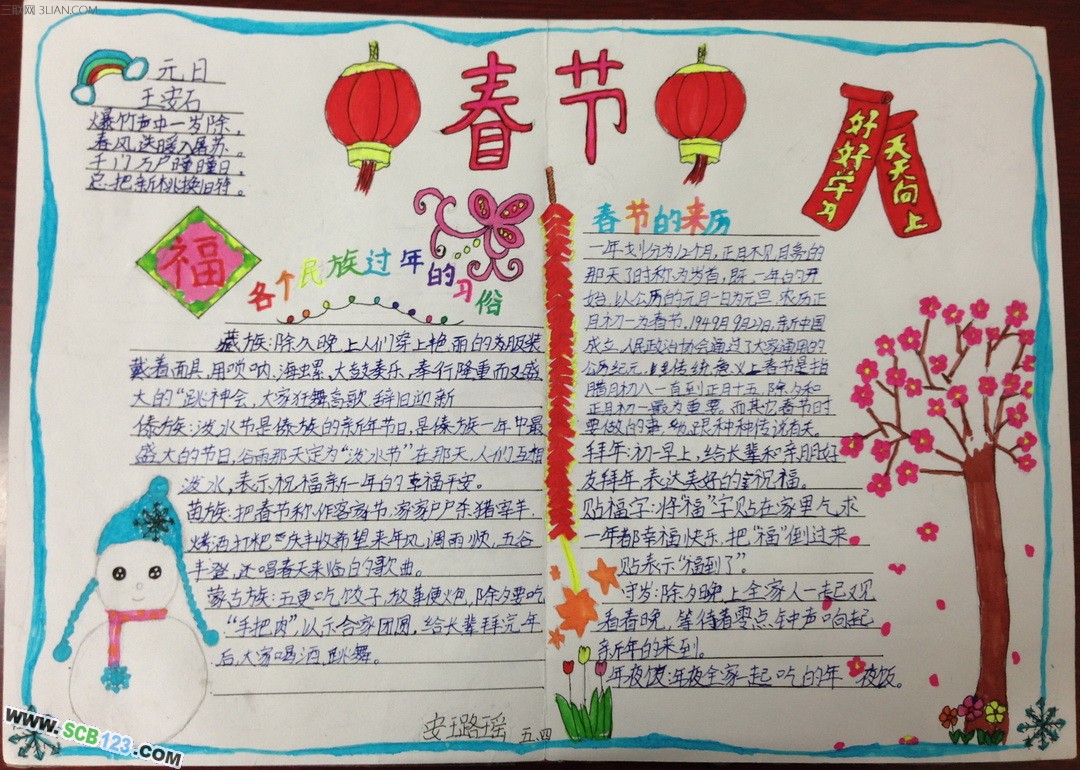 三联网 3LIAN.COM
春节
元日
王安石
爆竹声中一岁除，
春风送暖入屠苏。
千门万户曈曈日，
总把新桃换旧符。
福
各个民族过年的习俗
藏族：除夕晚上人们穿上艳丽的服装
戴着面具，用唢呐、海螺、大鼓奏乐，奉行隆重而又盛
大的“跳神会，大家狂舞高歌 辞旧迎新
傣族：泼水节是傣族的新年节日，是傣族一年中最
盛大的节日，谷雨那天定为“泼水节”在那天，人们互相
泼水，表示祝福新一年的幸福平安。
苗族：把春节称作客家节，家家户户杀猪宰羊，
烤酒打粑 庆丰收希望来年风调雨顺，五谷
丰登，还唱春天来临的歌曲。
蒙古族：五更吃饺子，放鞭火包，除夕要吃
“手把肉”，以示合家团圆，给长辈拜完年
后，大家喝酒，跳舞。
安珏路瑶 五.四
好好学习
天天向上
春节的来历
一年划分为12个月，正月不见月亮的
那天子时称为岁首，既一年的开
始，以公历的元月一日为元旦 农历正
月初一为春节，1949月9月27日，新中国
成立，人民政治协会通过了大家通用的
公历纪元，传统意义上春节是指
腊月初八一直到正月十五，除夕和
正月初一最为重要。而其它春节时
要做的事，也跟种种传说有关。
拜年：初一早上，给长辈和亲朋好
友拜年，表达美好的祝福。
贴福字：将“福”字贴在家里乞求
一年都幸福快乐，把“福”倒过来
贴表示“福到了”。
守岁：除夕晚上全家人一起观
看春晚，等待着零点钟声响起
新年的来到。
年夜饭：年夜全家一起吃的年夜饭。
www.SCB123.COM